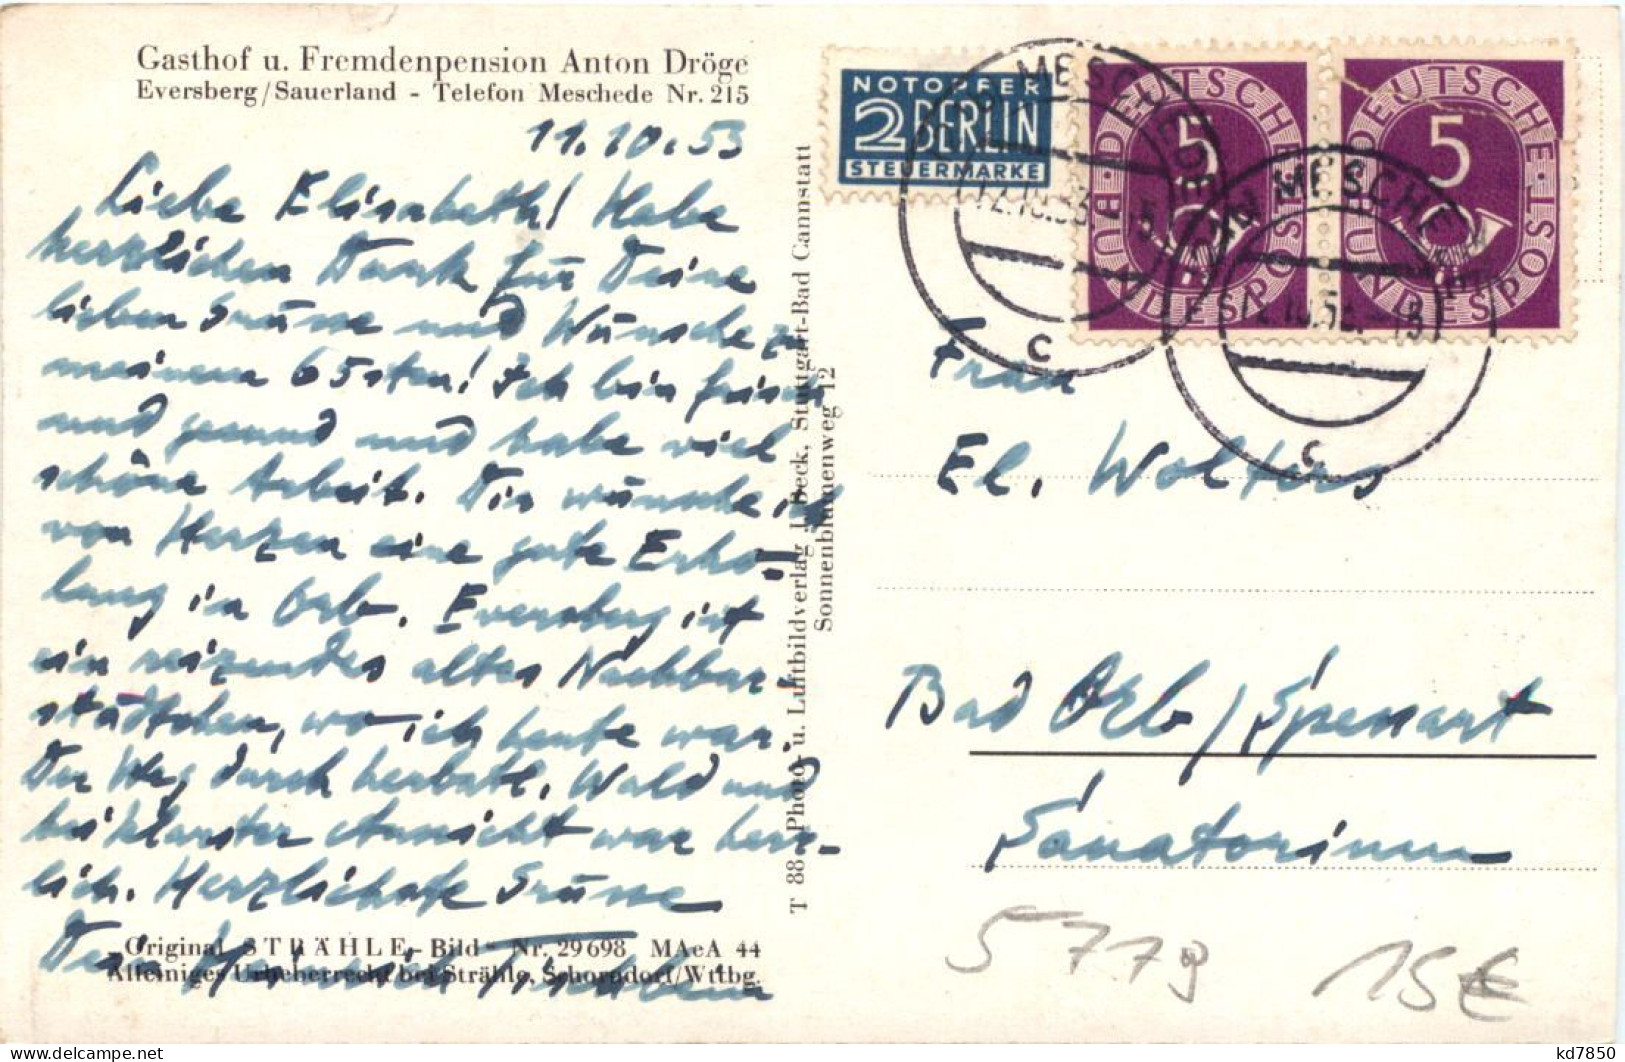 Gasthof u. Fremdenpension Anton Dröge
Eversberg/Sauerland - Telefon Meschede Nr. 215
11.10.53
Liebe Elisabeth! Habe
herzlichen Dank für Deine
lieben Grüsse und Wünsche zu
meinem 65sten! Ich bin frisch
und gesund und habe viel
schöne Arbeit. Dir wünsche ich
von Herzen eine gute Erho-
lung in Orb. Eversberg ist
ein reizendes altes Nachbar-
städtchen, wo ich heute war.
Der Weg durch herbstl. Wald und
bei klarster Aussicht war herr-
lich. Herzlichste Grüsse
Dein
„Original STRÄHLE-Bild“ Nr. 29698 MAeA 44
Alleiniges Urheberrecht bei Strähle, Schorndorf/Wttbg.
T 88 Photo- u. Luftbildverlag J. Beck, Stuttgart-Bad Cannstatt
Sonnenblumenweg 12
NOTOPFER
2 BERLIN
STEUERMARKE
DEUTSCHE BUNDESPOST
5
DEUTSCHE BUNDESPOST
5
MESCHEDE
12.10.53
c
MESCHEDE
12.10.53
c
Frau
El. Wolters
Bad Orb/Spessart
Sanatorium
5779
15€
kd7850